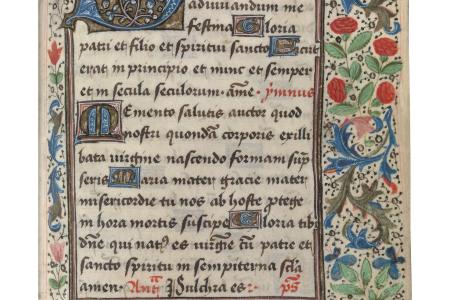 adiuuandum me
festina Gloria
patri et filio et spiritui sancto Sicut
erat in principio et nunc et semper
et in secula seculorum ame ymnus
Memento salutis auctor quod
nostri quondā corporis exilli
bata virgine nascendo formam sūp
seris Maria mater gracie mater
misericordie tu nos ab hoste ptege
in hora mortis suscipe Gloria tibi
dn̄e qui nat9 es virgīe cū patre et
sancto spiritu in sempiterna scla
amen Ana Pulchra es ps